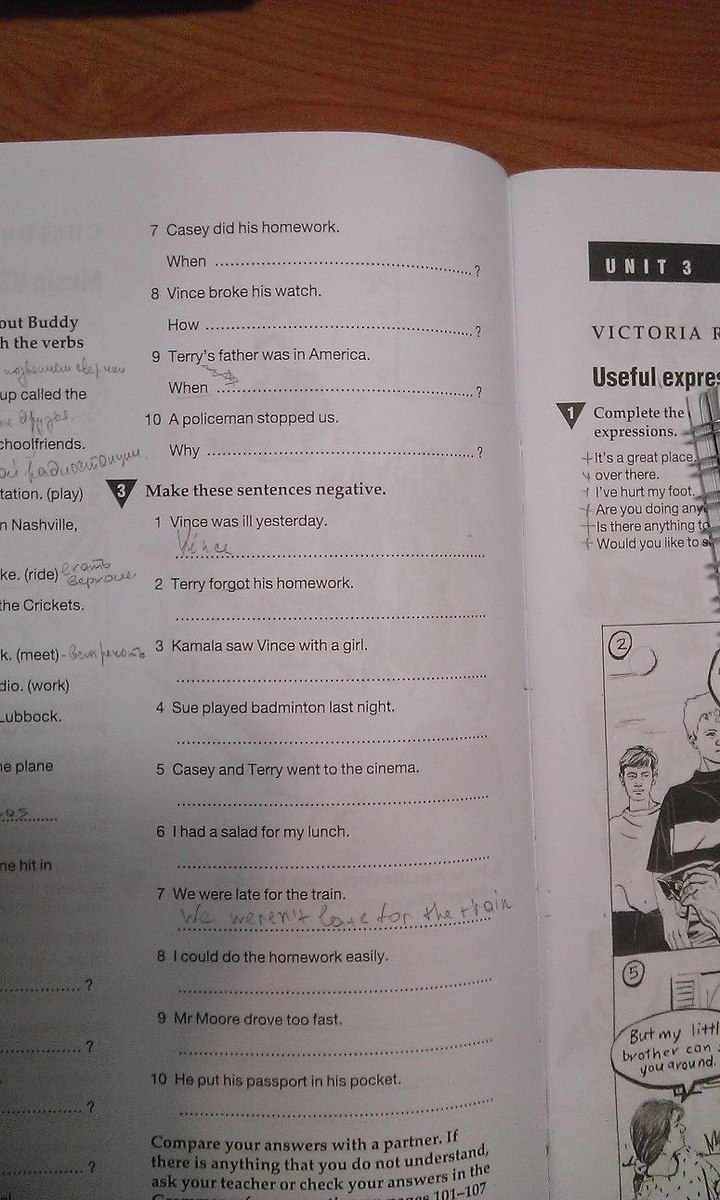 out Buddy
h the verbs
up called the
choolfriends.
tation. (play)
n Nashville,
ke. (ride) ехать
верхом
the Crickets.
k. (meet) -
dio. (work)
Lubbock.
ne plane
ne hit in
............ ?
............ ?
............ ?
............ ?
7 Casey did his homework.
When ............ ?
8 Vince broke his watch.
How ............ ?
9 Terry's father was in America.
When ............ ?
10 A policeman stopped us.
Why ............ ?
3 Make these sentences negative.
1 Vince was ill yesterday.
Vince
2 Terry forgot his homework.
3 Kamala saw Vince with a girl.
4 Sue played badminton last night.
5 Casey and Terry went to the cinema.
6 I had a salad for my lunch.
7 We were late for the train.
We weren't late for the train
8 I could do the homework easily.
9 Mr Moore drove too fast.
10 He put his passport in his pocket.
Compare your answers with a partner. If
there is anything that you do not understand,
ask your teacher or check your answers in the
101–107
UNIT 3
VICTORIA R
Useful expres
1 Complete the
expressions.
It's a great place.
over there.
I've hurt my foot.
Are you doing any
Is there anything to
Would you like to s
2
5
But my littl
brother can
you around.